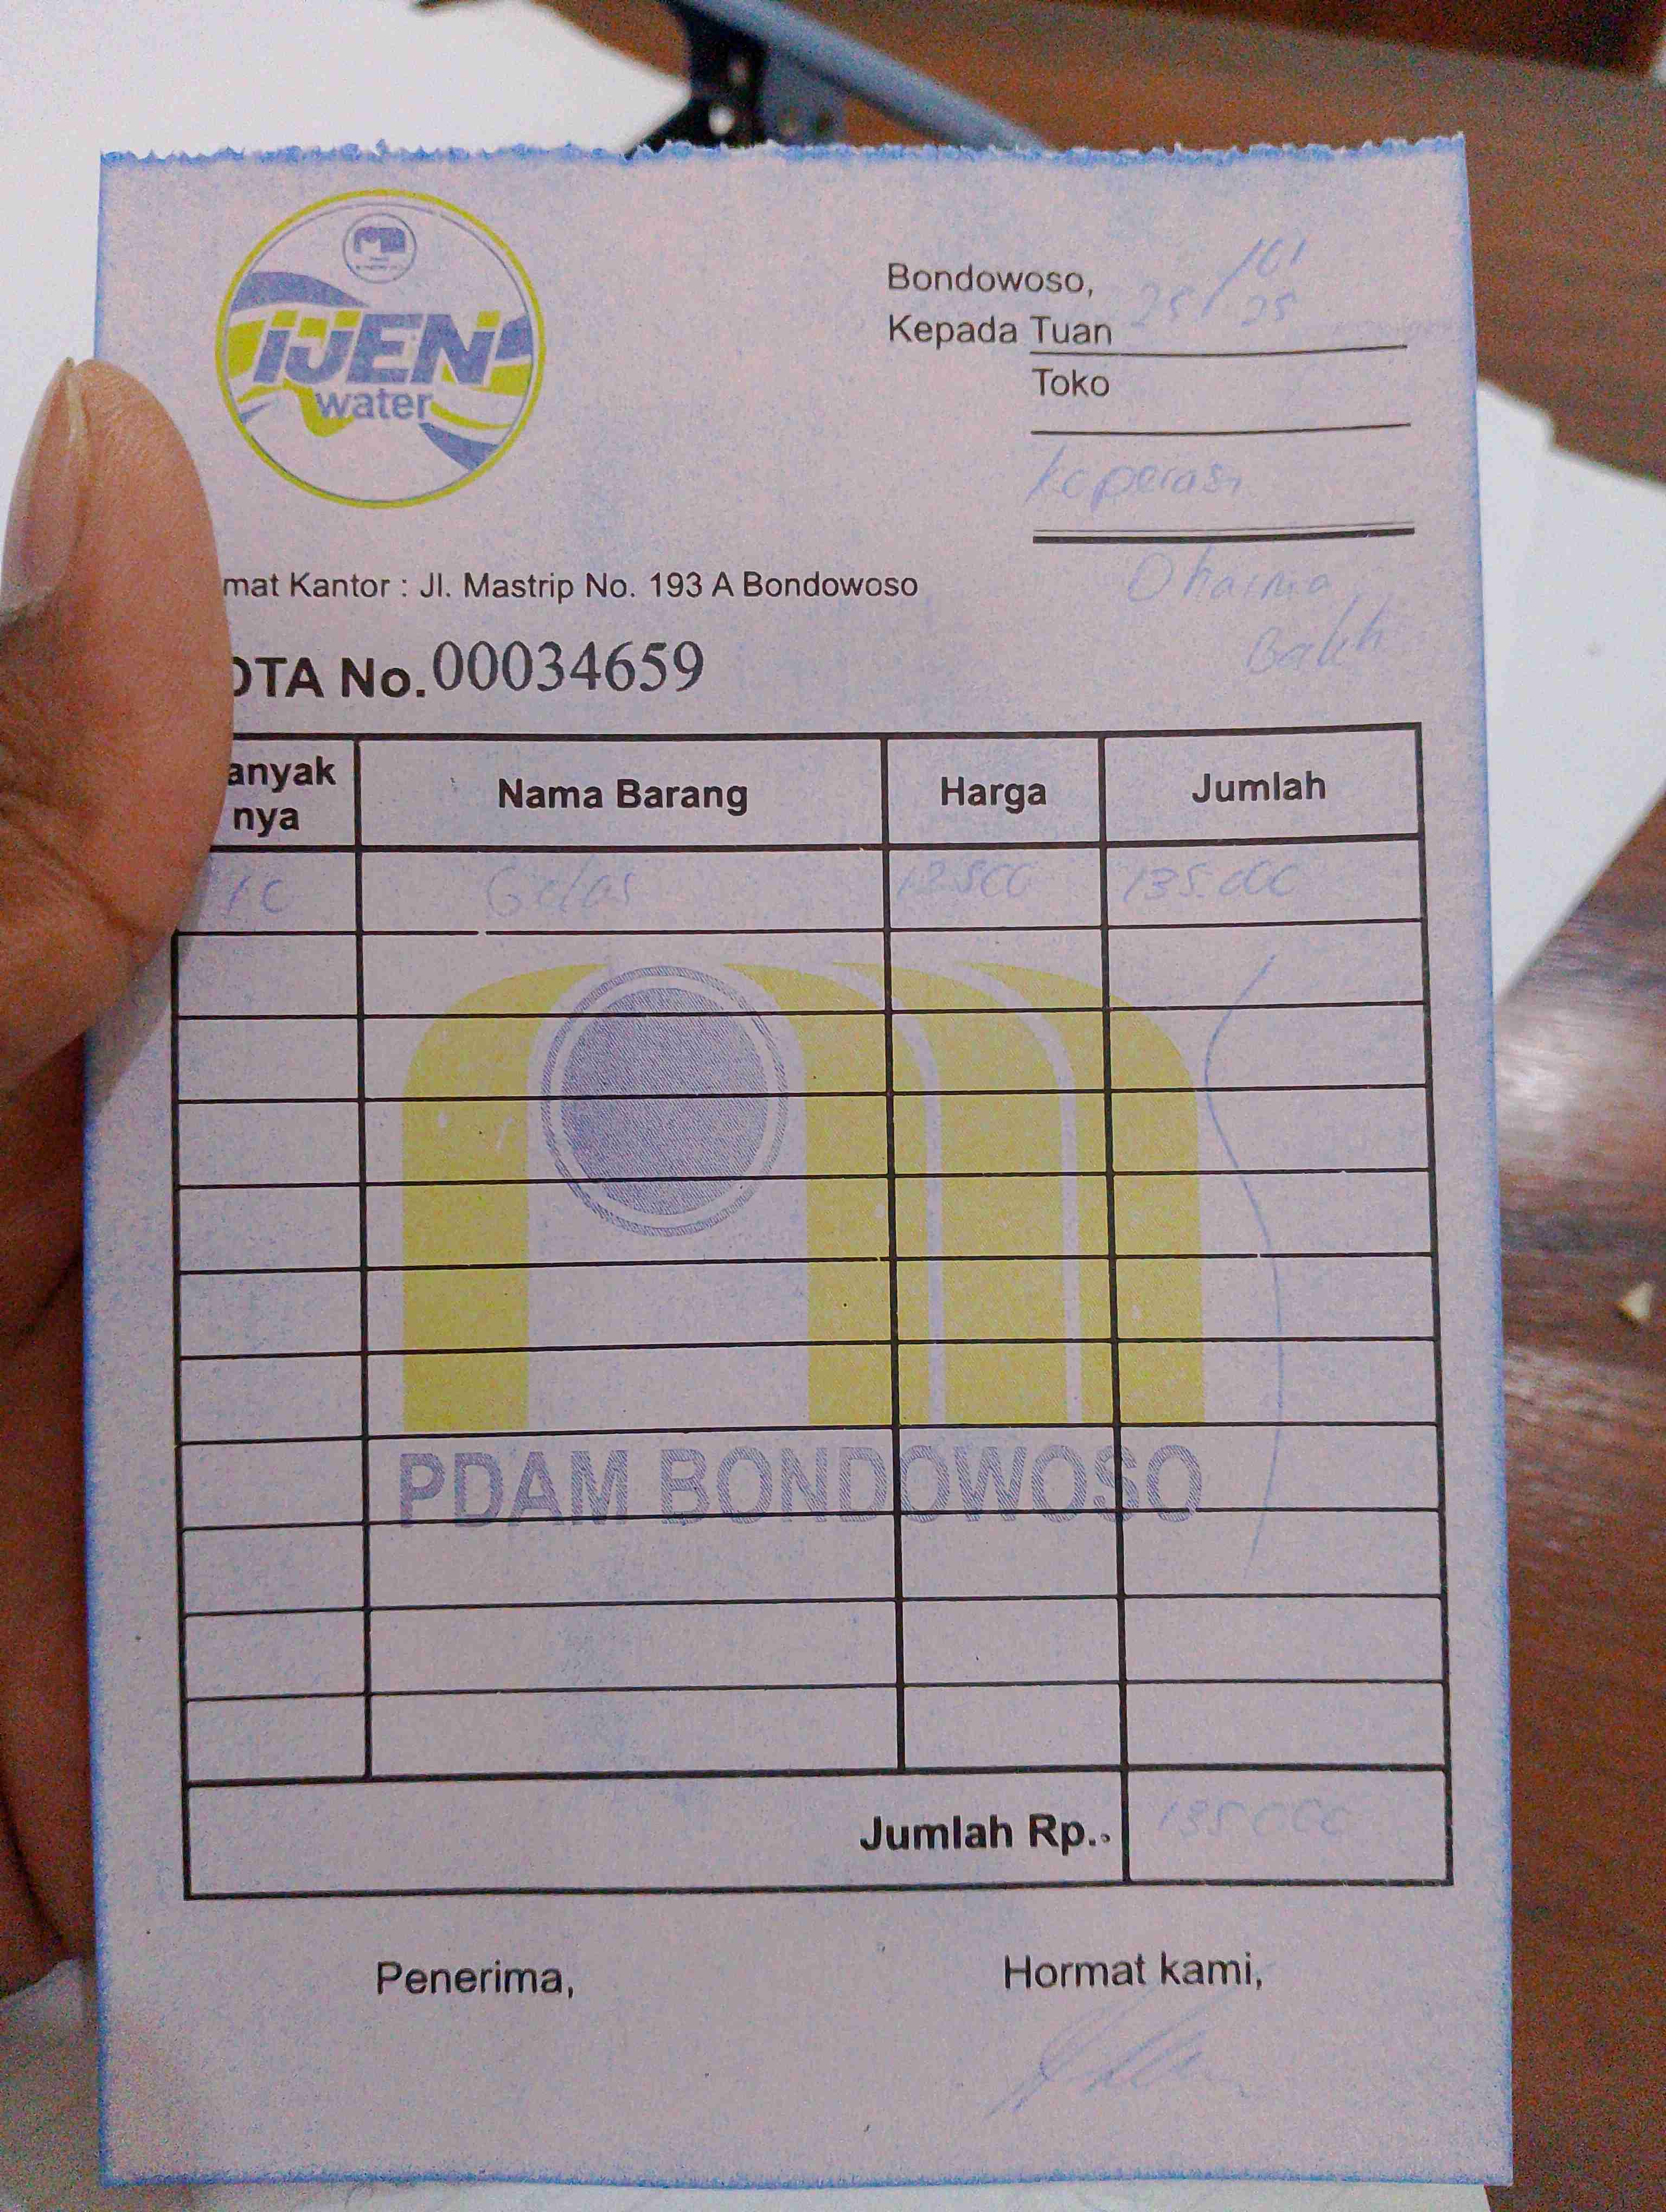 IJEN
water
Bondowoso,
25/
25
Kepada Tuan
Toko
Koperasi
Dharma
mat Kantor : Jl. Mastrip No. 193 A Bondowoso
OTA No. 00034659
anyak nya Nama Barang Harga Jumlah
Gelas 135.000
PDAM BONDOWOSO
Jumlah Rp.. 135000
Penerima, Hormat kami,